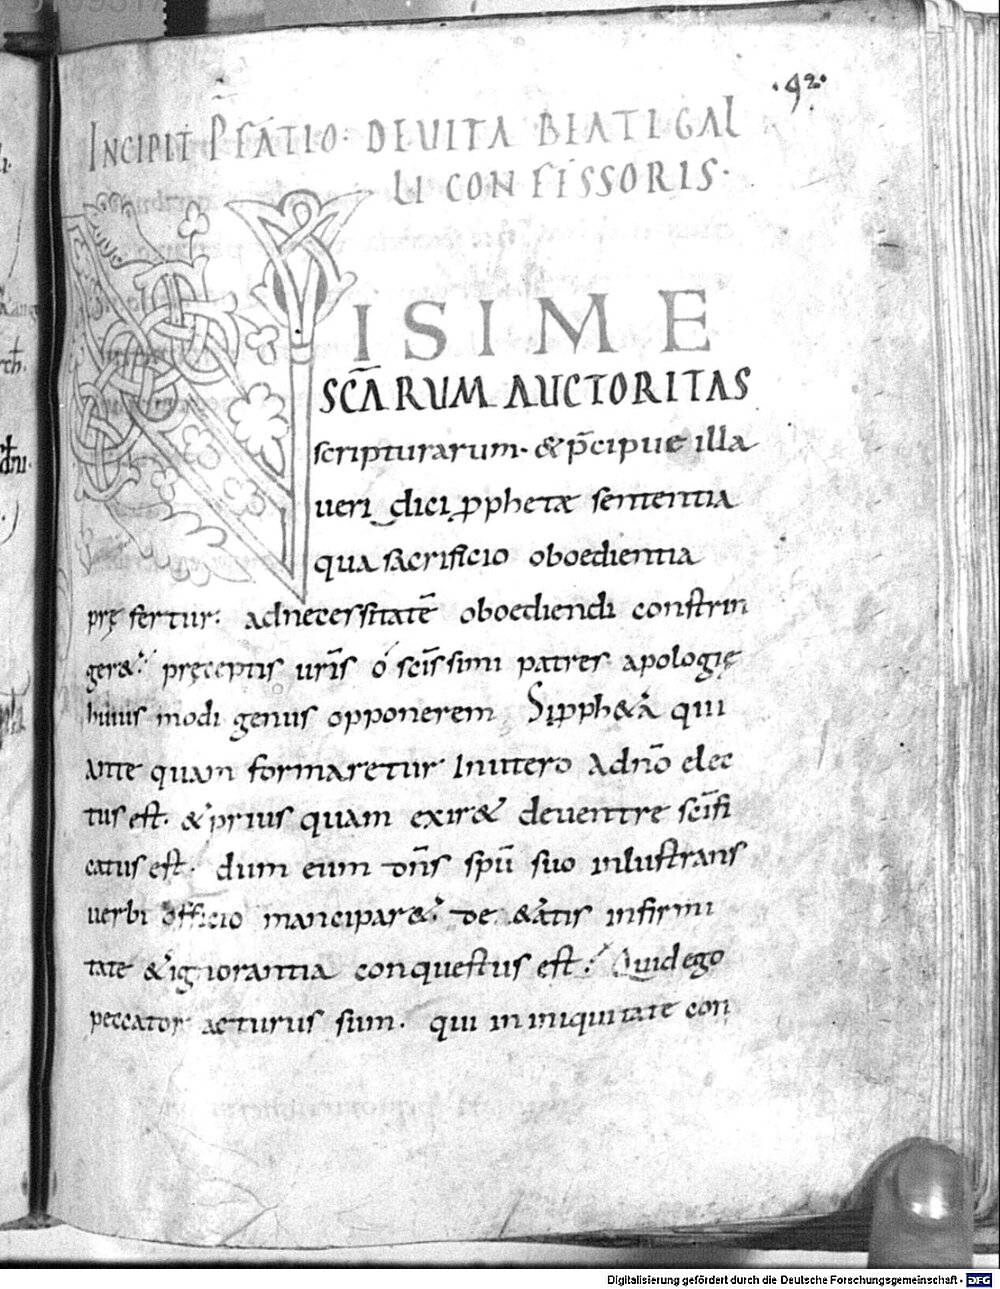 .92.
INCIPIT P̄FATIO· DE UITA BEATI GAL
LI CONFESSORIS·
NISI ME
SC̄ARUM AUCTORITAS
scripturarum· & p̄cipue illa
ueri dici pphetæ sententia
qua sacrificio oboedientia
prę fertur· ad necessitatē oboediendi constrin
ger&· pręceptis uris̄ o sc̄issimi patres apologię
huius modi genus opponerem Si ppheta qui
ante quam formaretur In utero a dn̄o elec
tus est· & prius quam exir& de uentre sc̄ifi
catus est· dum eum dn̄s spū suo inlustrans
uerbi officio mancipar&· de &atis infirmi
tate & ignorantia conquestus est· Quid ego
peccator acturus sum· qui in iniquitate con
Digitalisierung gefördert durch die Deutsche Forschungsgemeinschaft - DFG